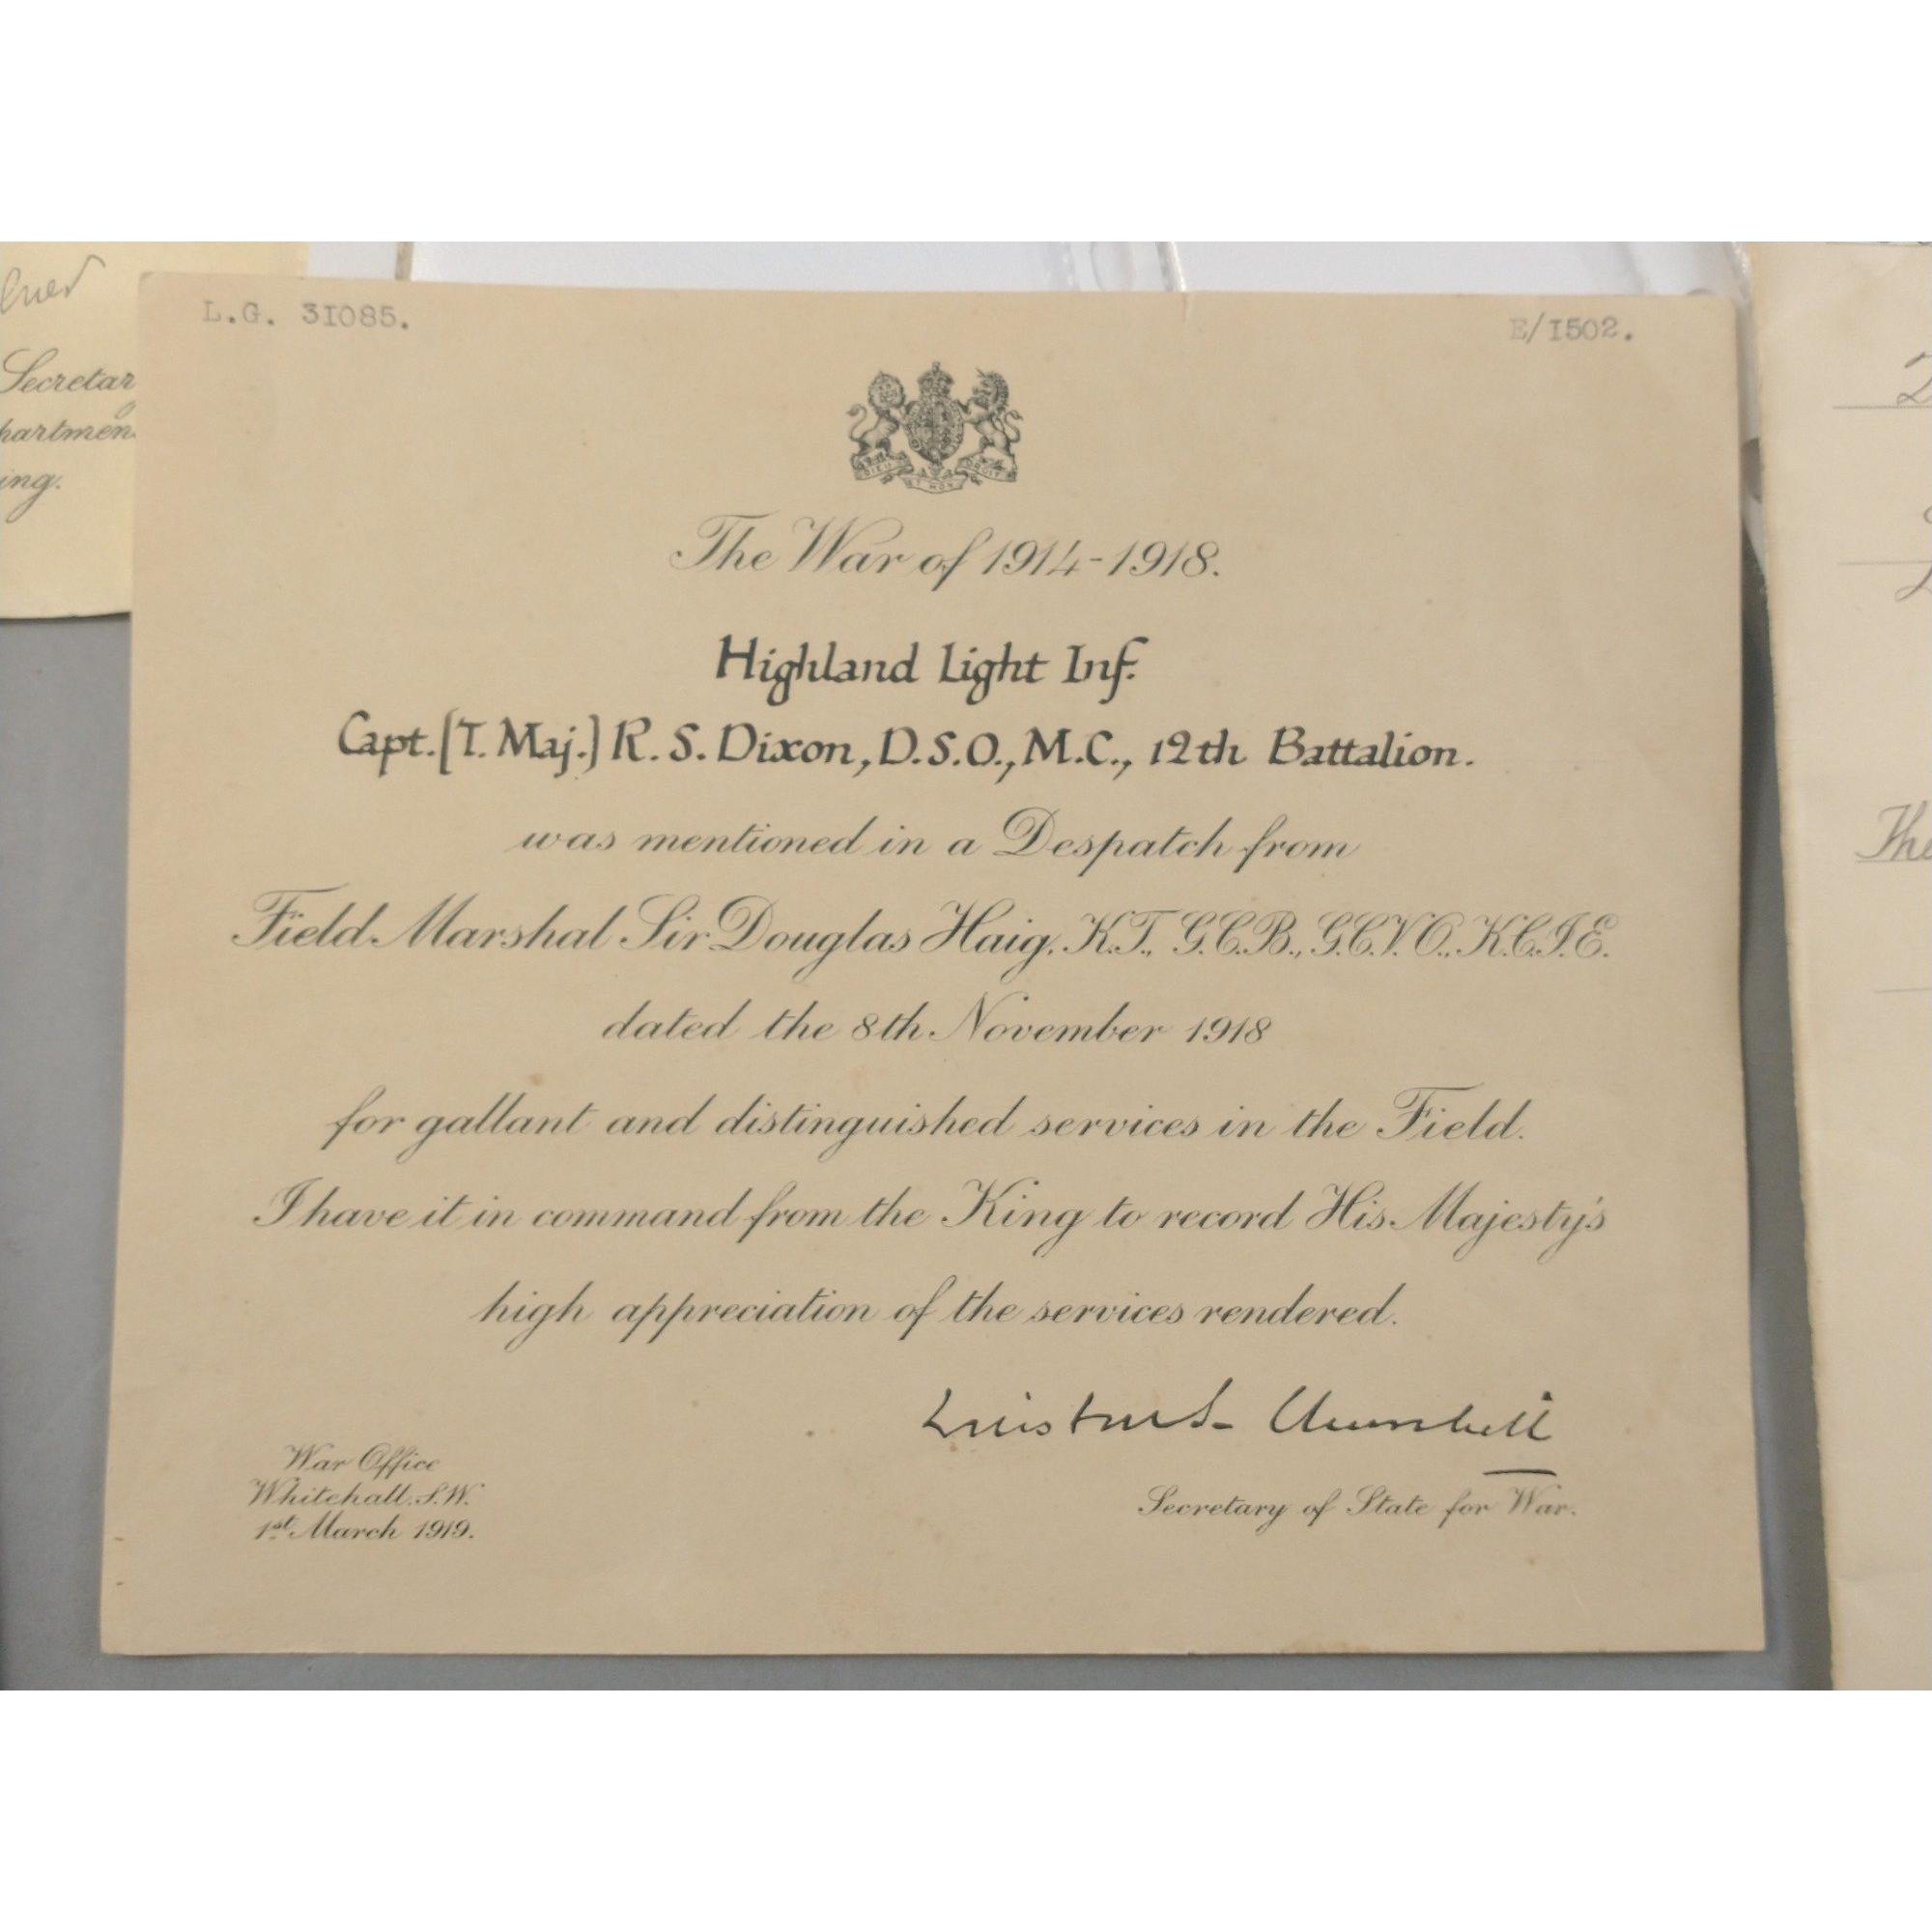 L.G. 31085.
E/1502.
DIEU ET MON DROIT
The War of 1914-1918.
Highland Light Inf.
Capt.[T. Maj.] R. S. Dixon, D.S.O., M.C., 12th Battalion.
was mentioned in a Despatch from
Field Marshal Sir Douglas Haig. K.T., G.C.B., G.C.V.O., K.C.I.E.
dated the 8th November 1918
for gallant and distinguished services in the Field.
I have it in command from the King to record His Majesty's
high appreciation of the services rendered.
Winston S. Churchill
Secretary of State for War.
War Office
Whitehall. S.W.
1st March 1919.
Secretar
partmen
ing.
The